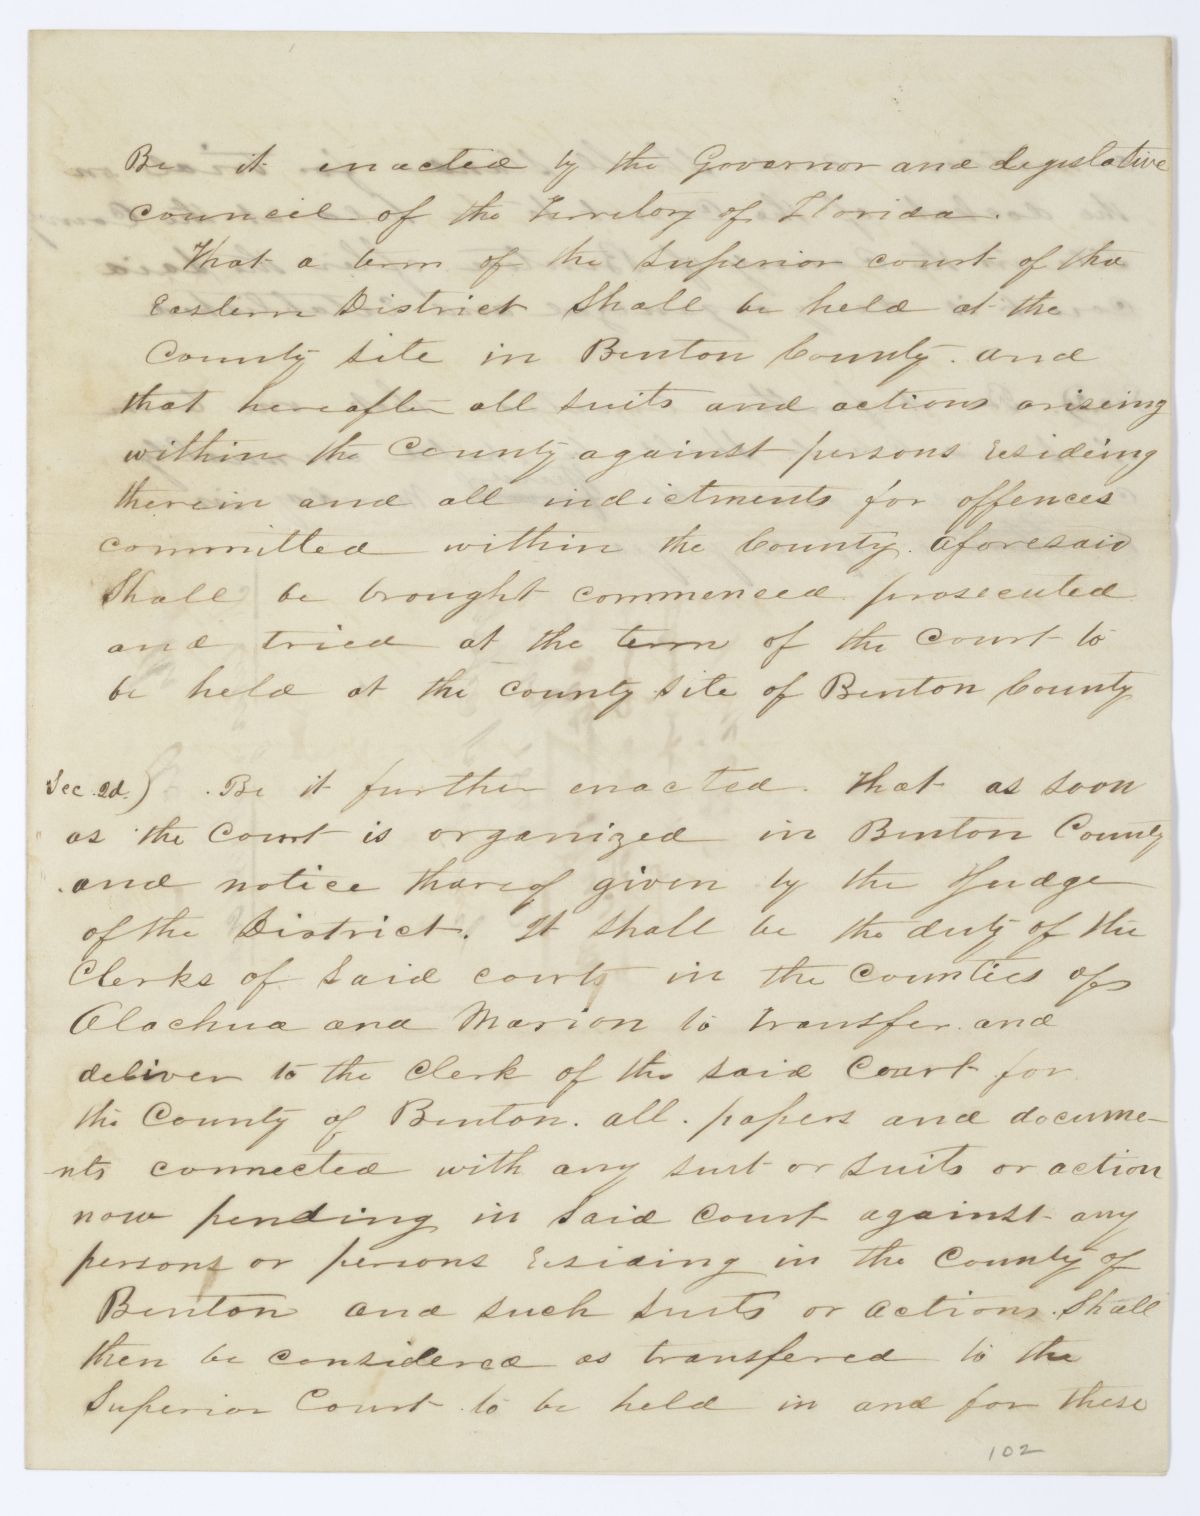 Be it enacted by the Governor and Legislative
Council of the Territory of Florida.
That a term of the Superior court of the
Eastern District Shall be held at the
County Site in Benton County. and
that hereafter all suits and actions ariseing
within the County against persons Resideing
therein and all indictments for offences
committed within the County. aforesaid
Shall be brought commenced prosecuted
and tried at the term of the Court to
be held at the County Site of Benton County
Sec. 2d.) Be it further enacted. That as soon
as the Court is organized in Benton County
and notice thareof given by the Judge
of the District. It shall be the duty of the
Clerks of Said courts in the Counties of
Alachua and Marion to transfer and
deliver to the Clerk of the said Court for
the County of Benton. all. papers and docume-
nts connected with any suit or suits or action
now pending in Said Court against any
persons or persons Residing in the County of
Benton and such Suits or actions. Shall
then be considered as transfered to the
Superior Court to be held in and for these
102